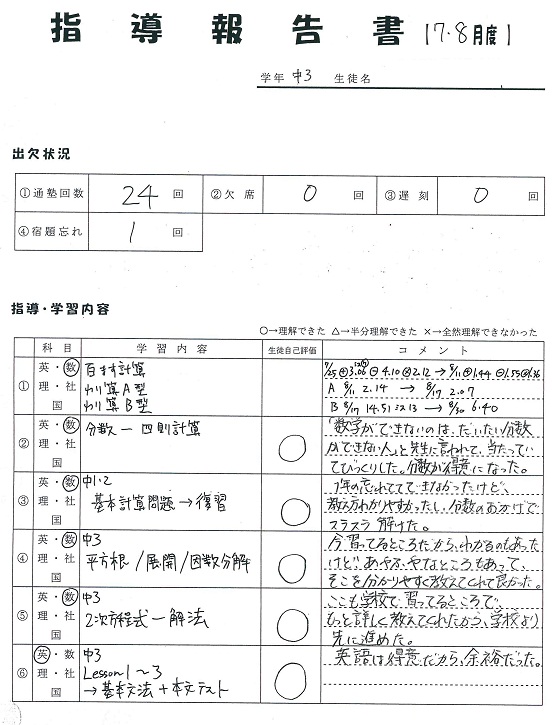 指導報告書 17.8月度
学年 中3 生徒名
出欠状況
①通塾回数 24 回 ②欠席 0 回 ③遅刻 0 回
④宿題忘れ 1 回
指導・学習内容
○→理解できた △→半分理解できた ×→全然理解できなかった
科目 学習内容 生徒自己評価 コメント
① 英・数 理・社 国
百ます計算
わり算A型
わり算B型
A 8/11 2.14 → 8/17 2.07
B 8/17 14.51 → 8/30 6.40
② 英・数 理・社 国
分数ー四則計算
○
「数学ができないのは、だいたい分数
ができない人」と先生に言われて、当たってい
てびっくりした。分数が得意になった。
③ 英・数 理・社 国
中1・2
基本計算問題→復習
○
1年の忘れててできなかったけど、
教え方わかりやすかったし、分数のおかげで
スラスラ解けた。
④ 英・数 理・社 国
中3
平方根/展開/因数分解
○
今習ってるところだから、わかるのもあった
けど、あやふやなところもあって、
そこを分かりやすく教えてくれて良かった。
⑤ 英・数 理・社 国
中3
2次方程式ー解法
○
ここも学校で習ってるところで、
もっと詳しく教えてくれたから、学校より
先に進めた。
⑥ 英・数 理・社 国
中3
Lesson1~3
→基本文法+本文テスト
○
英語は得意だから、余裕だった。